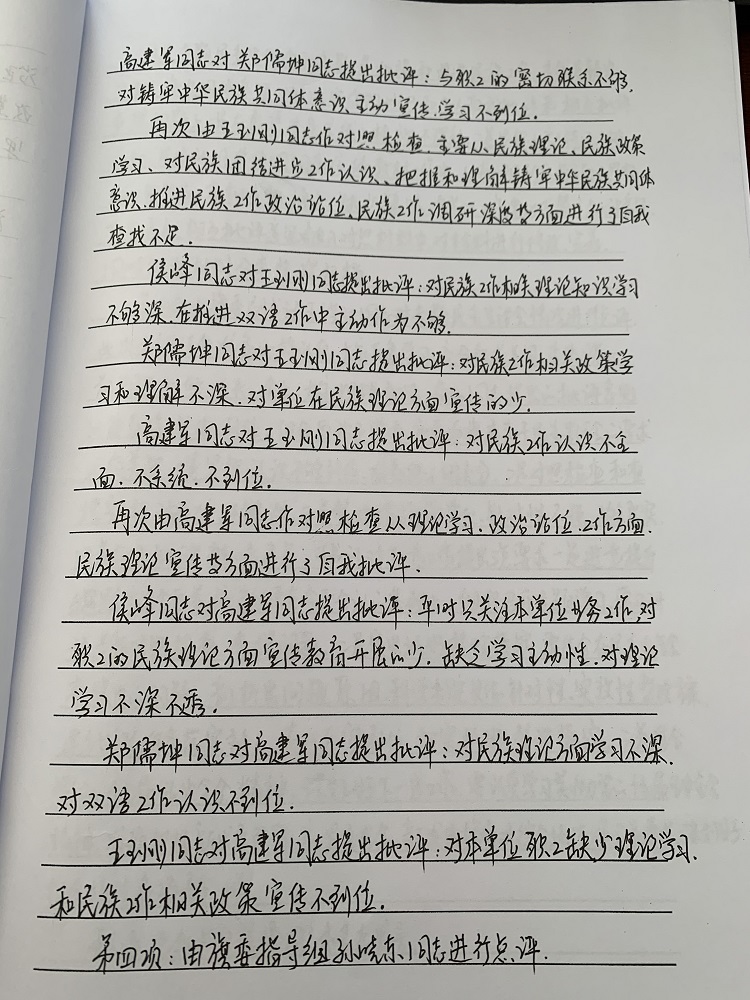 高建军同志对郑儒坤同志提出批评：与职工的密切联系不够，
对铸牢中华民族共同体意识主动宣传、学习不到位。
再次由王玉刚同志作对照检查，主要从民族理论、民族政策
学习、对民族团结进步工作认识、把握和理解铸牢中华民族共同体
意识、推进民族工作政治站位、民族工作调研深度等方面进行了自我
查找不足。
侯峰同志对王玉刚同志提出批评：对民族工作相关理论知识学习
不够深，在推进双语工作中主动作为不够。
郑儒坤同志对王玉刚同志提出批评：对民族工作相关政策学
习和理解不深，对单位在民族理论方面宣传的少。
高建军同志对王玉刚同志提出批评：对民族工作认识不全
面，不系统，不到位。
再次由高建军同志作对照检查从理论学习、政治站位、工作方面、
民族理论宣传等方面进行了自我批评。
侯峰同志对高建军同志提出批评：平时只关注本单位业务工作，对
职工的民族理论方面宣传教育开展的少，缺乏学习主动性，对理论
学习不深不透。
郑儒坤同志对高建军同志提出批评：对民族理论方面学习不深，
对双语工作认识不到位。
王玉刚同志对高建军同志提出批评：对本单位职工缺少理论学习，
和民族工作相关政策宣传不到位。
第四项：由旗委指导组孙晓东同志进行点评。